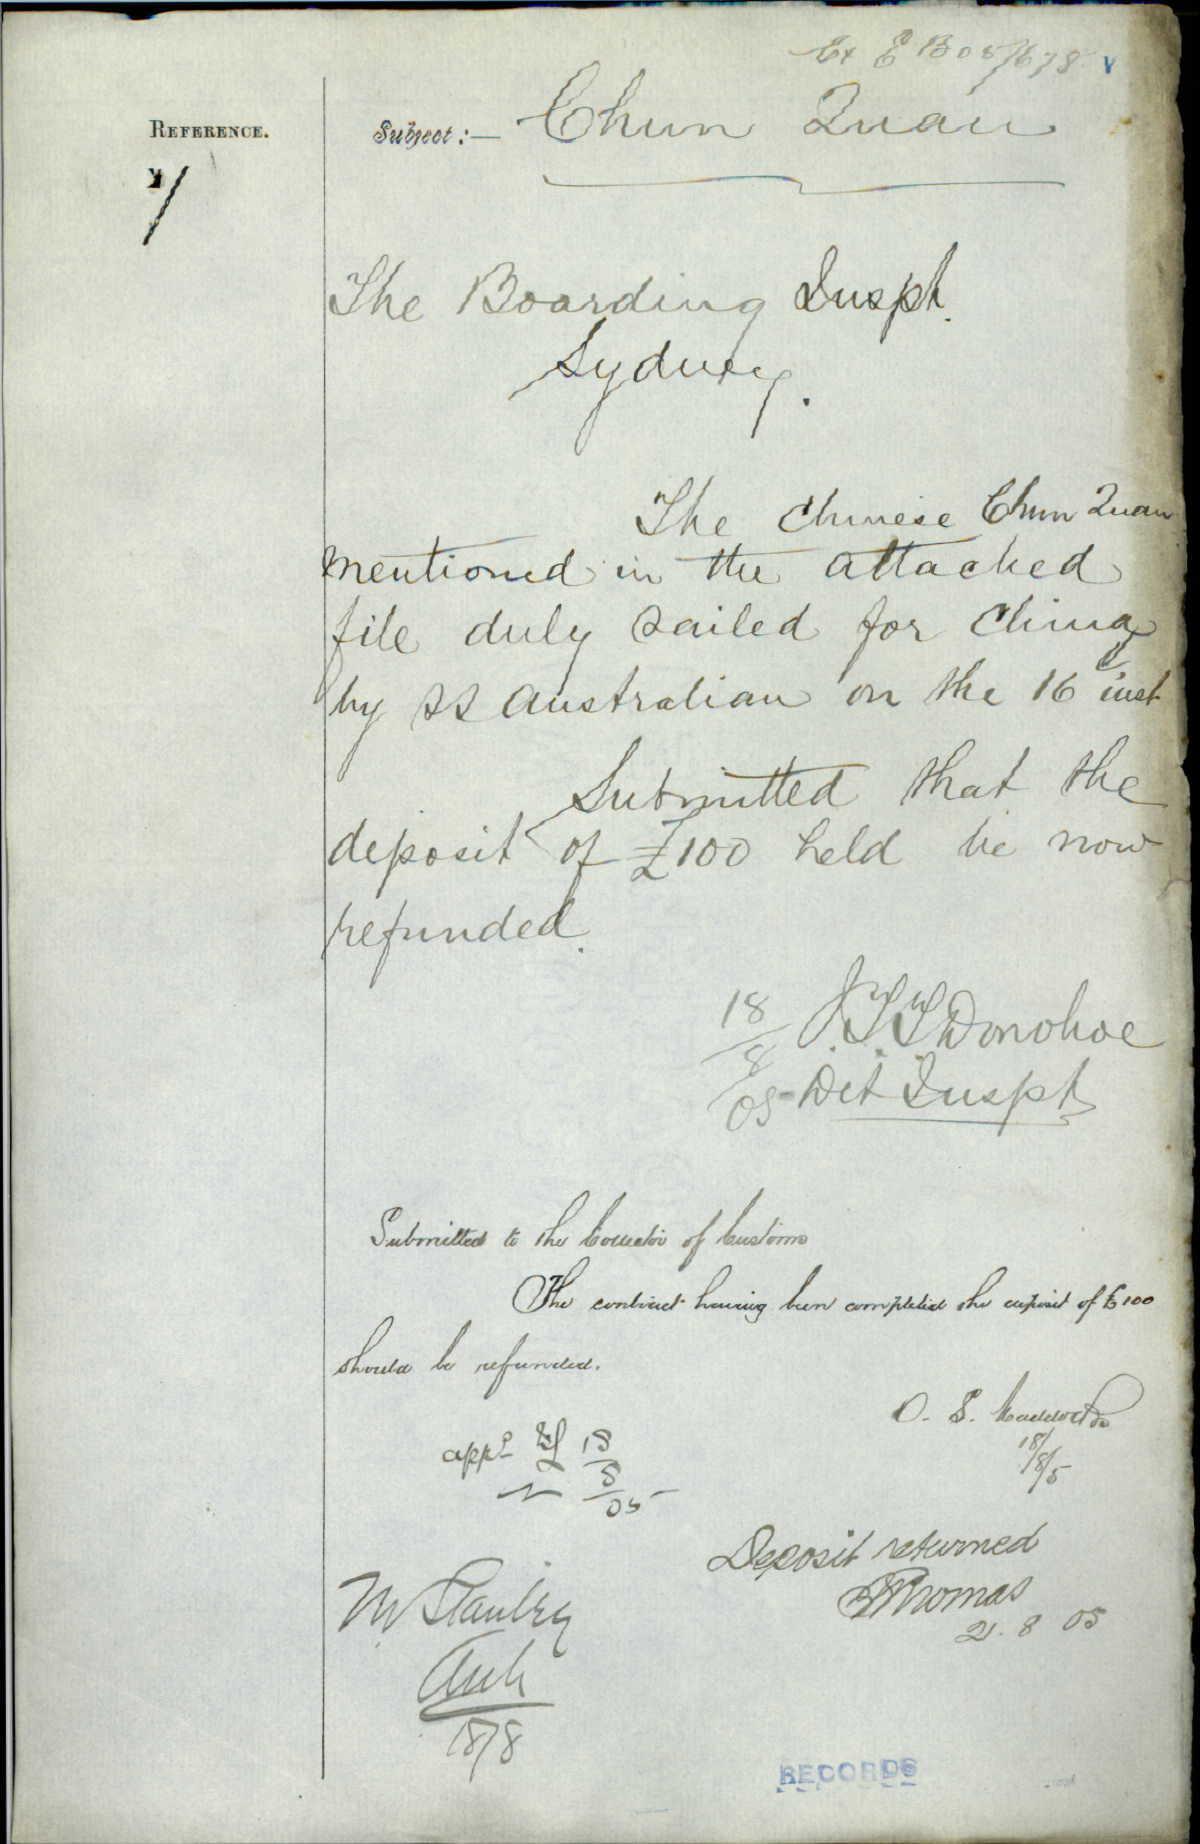 B05/678
REFERENCE.
Subject:— Chun Quan
1
The Boarding Inspt.
Sydney.
The Chinese Chun Quan
mentioned in the attached
file duly sailed for China
by SS Australian on the 16 inst
Submitted that the
deposit of £100 held be now
refunded.
18/8/05 J.T.T. Donohoe
Det Inspt
Submitted to the Collector of Customs
The contract having been completed the deposit of £100
should be refunded.
18/8/5
appd 18/8/05
Deposit returned
Thomas
21.8 05
Mr Stanley
18/8
RECORDS